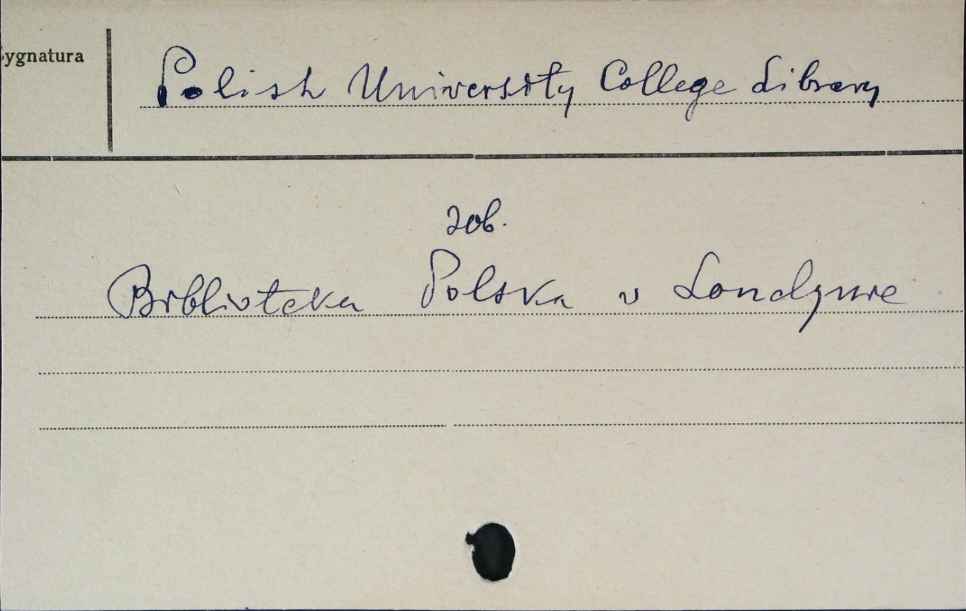 Sygnatura
Polish University College Library
zob.
Biblioteka Polska w Londynie